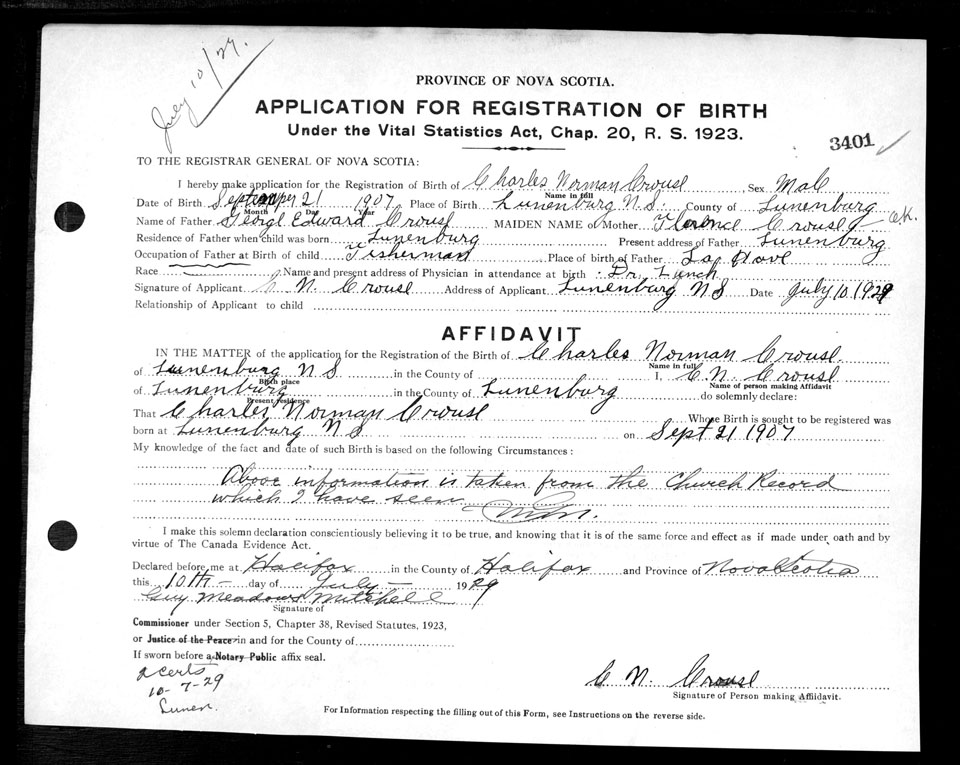 July 10/29.
PROVINCE OF NOVA SCOTIA.
APPLICATION FOR REGISTRATION OF BIRTH
Under the Vital Statistics Act, Chap. 20, R. S. 1923.
3401
TO THE REGISTRAR GENERAL OF NOVA SCOTIA:
I hereby make application for the Registration of Birth of Charles Norman Crouse Sex Male
Name in full
Date of Birth September 21 1907 Place of Birth Lunenburg N.S. County of Lunenburg
Month Day Year
Name of Father George Edward Crouse MAIDEN NAME of Mother Florence Crouse Ck.
Residence of Father when child was born Lunenburg Present address of Father Lunenburg
Occupation of Father at Birth of child Fisherman Place of birth of Father La Have
Race Name and present address of Physician in attendance at birth Dr. Lynch
Signature of Applicant C N. Crouse Address of Applicant Lunenburg NS Date July 10 1929
Relationship of Applicant to child
AFFIDAVIT
IN THE MATTER of the application for the Registration of the Birth of Charles Norman Crouse.
Name in full
of Lunenburg N S in the County of I, C. N. Crouse
Birth place Name of person making Affidavit
of Lunenburg in the County of Lunenburg do solemnly declare:
Present residence
That Charles Norman Crouse Whose Birth is sought to be registered was
born at Lunenburg NS on Sept 21 1907
My knowledge of the fact and date of such Birth is based on the following Circumstances:
Above information is taken from the Church Record
which I have seen
I make this solemn declaration conscientiously believing it to be true, and knowing that it is of the same force and effect as if made under oath and by
virtue of The Canada Evidence Act.
Declared before me at Halifax in the County of Halifax and Province of Nova Scotia
this 10th day of July 1929
Guy Meadows Mitchell
Signature of
Commissioner under Section 5, Chapter 38, Revised Statutes, 1923,
or Justice of the Peace in and for the County of
If sworn before a Notary Public affix seal.
2 certs
10-7-29
Lunen.
C. N. Crouse
Signature of Person making Affidavit.
For Information respecting the filling out of this Form, see Instructions on the reverse side.